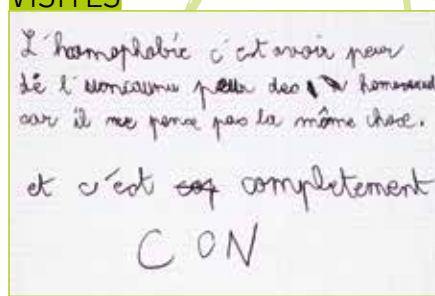 VISITES
L'homophobie c'est avoir peur
de l'inconnu peur des
car il ne pense pas la même chose.
et c'est completement
CON